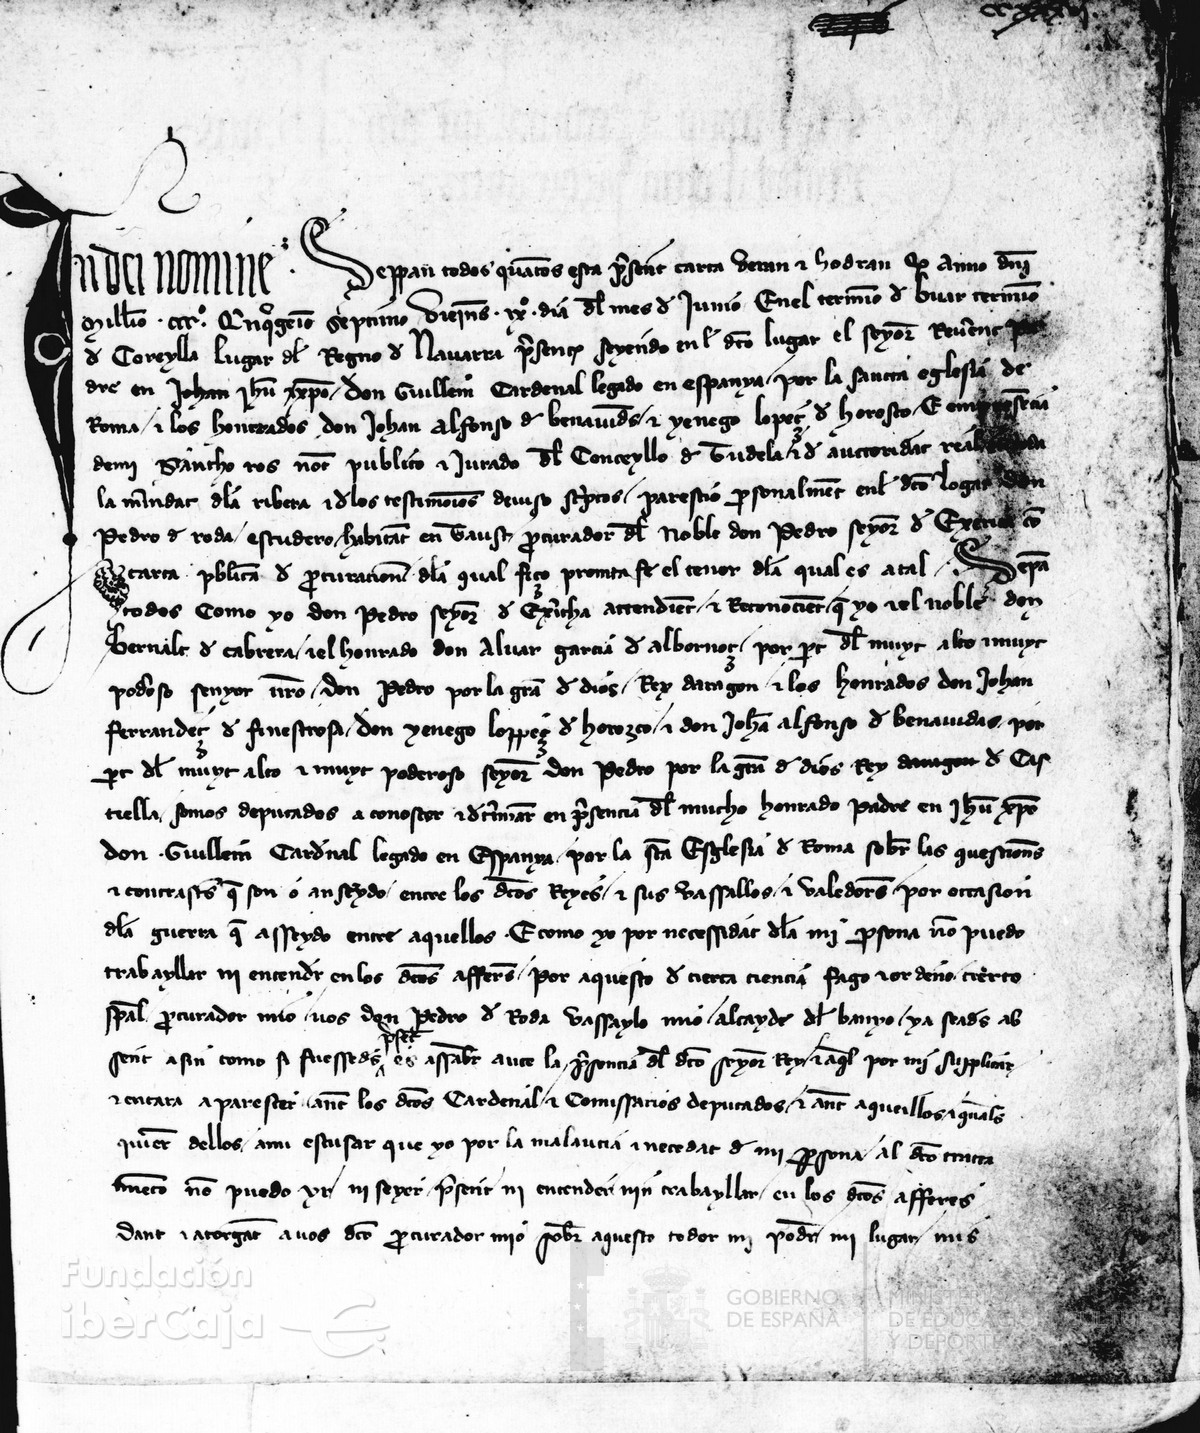 In dei nomine. Seppan todos quantos esta p̃sent carta veran ⁊ hodran q̃ Anno dñi
Mill̃io .ccc.º Cinq̃geĩo septimo vieiñs .xx. dia dl̃ mes d̃ Junio En el termĩo d̃ buar termino
d̃ Coreylla lugar dl̃ Regno d̃ Navarra p̃sent seyendo en l dc̃o lugar el seyor Reũent pa
dre en Johan jhũ xp̃o don Guillem Cardenal legado en espanya por la sancta eglesia de
Roma ⁊ los honrrados don Johan Alfonso d̃ benavids ⁊ yenego lopeç d̃ horosco E en p̃sencia
de mi Sancho ros not̃ publico ⁊ Jurado dl̃ Conceyllo d̃ Tudela ⁊ d̃ auctoridat real
la m̃indat dl̃a ribera ⁊ d̃los testimonios deiuso sc̃ptos parescio p̃sonalment enl dc̃o logar don
Pedro d̃ roda escudero habitãt en Taust p̃curador dl̃ Noble don Pedro seyor d̃ Exerica cõ
carta publica d̃ p̃curacion dl̃a qual fiço prompta fe el tenor dl̃a qual es atal Sepã
todos Como yo don Pedro seyor d̃ Ex̃icha attendient ⁊ Reconocient q̃ yo ⁊ el noble don
Bernalt d̃ cabrera ⁊ el honrado don Aluar garcia d̃ albornoç por p̃t dl̃ muyt alto ⁊ muyt
poderoso senyor nr̃o don Pedro por la grã d̃ dios Rey daragon ⁊ los honrados don Johan
ferrandeç d̃ finestrosa don yenego loppeç d̃ horozco ⁊ don Johã alfonso d̃ benauidas por
p̃t dl̃ muyt alto ⁊ muyt poderoso seyor don Pedro por la grã d̃ dios Rey daragon d̃ Cas
tiella somos deputados a conoscer ⁊ d̃tminar en p̃sencia dl̃ mucho honrado Padre en Jhũ xp̃o
don Guillem Cardinal legado en Espanya por la sc̃ta Esglesia d̃ Roma sobr̃ las questions
⁊ contrasts q̃ son o an seydo entre los dc̃os Reyes ⁊ sus vassallos ⁊ valedors por occasion
dl̃a guerra q̃ asseydo entre aquellos E como yo por necessidat dl̃a mi p̃sona no puedo
trabayllar ni entendr̃ en los dc̃os affers Por aquesto d̃ cierta ciencia fago ⁊ ordeno cierto
sp̃al p̃curador mio uos don Pedro d̃ Roda vassayllo mio alcayde dl̃ banyo ya seads ab
sent asin como si fuesseds p̃sent es assabr̃ ante la p̃sencia dl̃ dc̃o seyor Rey ⁊ aql̃ por mi supplicar
⁊ encara a parescer ant los dc̃os Cardenal ⁊ Comissarios deputados ⁊ ant aqueillos ⁊ quals
quier dellos ami escusar que yo por la malautia ⁊ necedat d̃ mi p̃sona al dc̃o tracta
miento no puedo yr ni seyer p̃sent ni entender nin trabayllar en los dc̃os afferes
dant ⁊ atorgant a uos dc̃o p̃curador mio sobr̃ aquesto todo mi podr̃ mi lugar mis
Fundación
iberCaja
GOBIERNO
DE ESPAÑA
MINISTERIO
DE EDUCACIÓN, CULTURA
Y DEPORTE